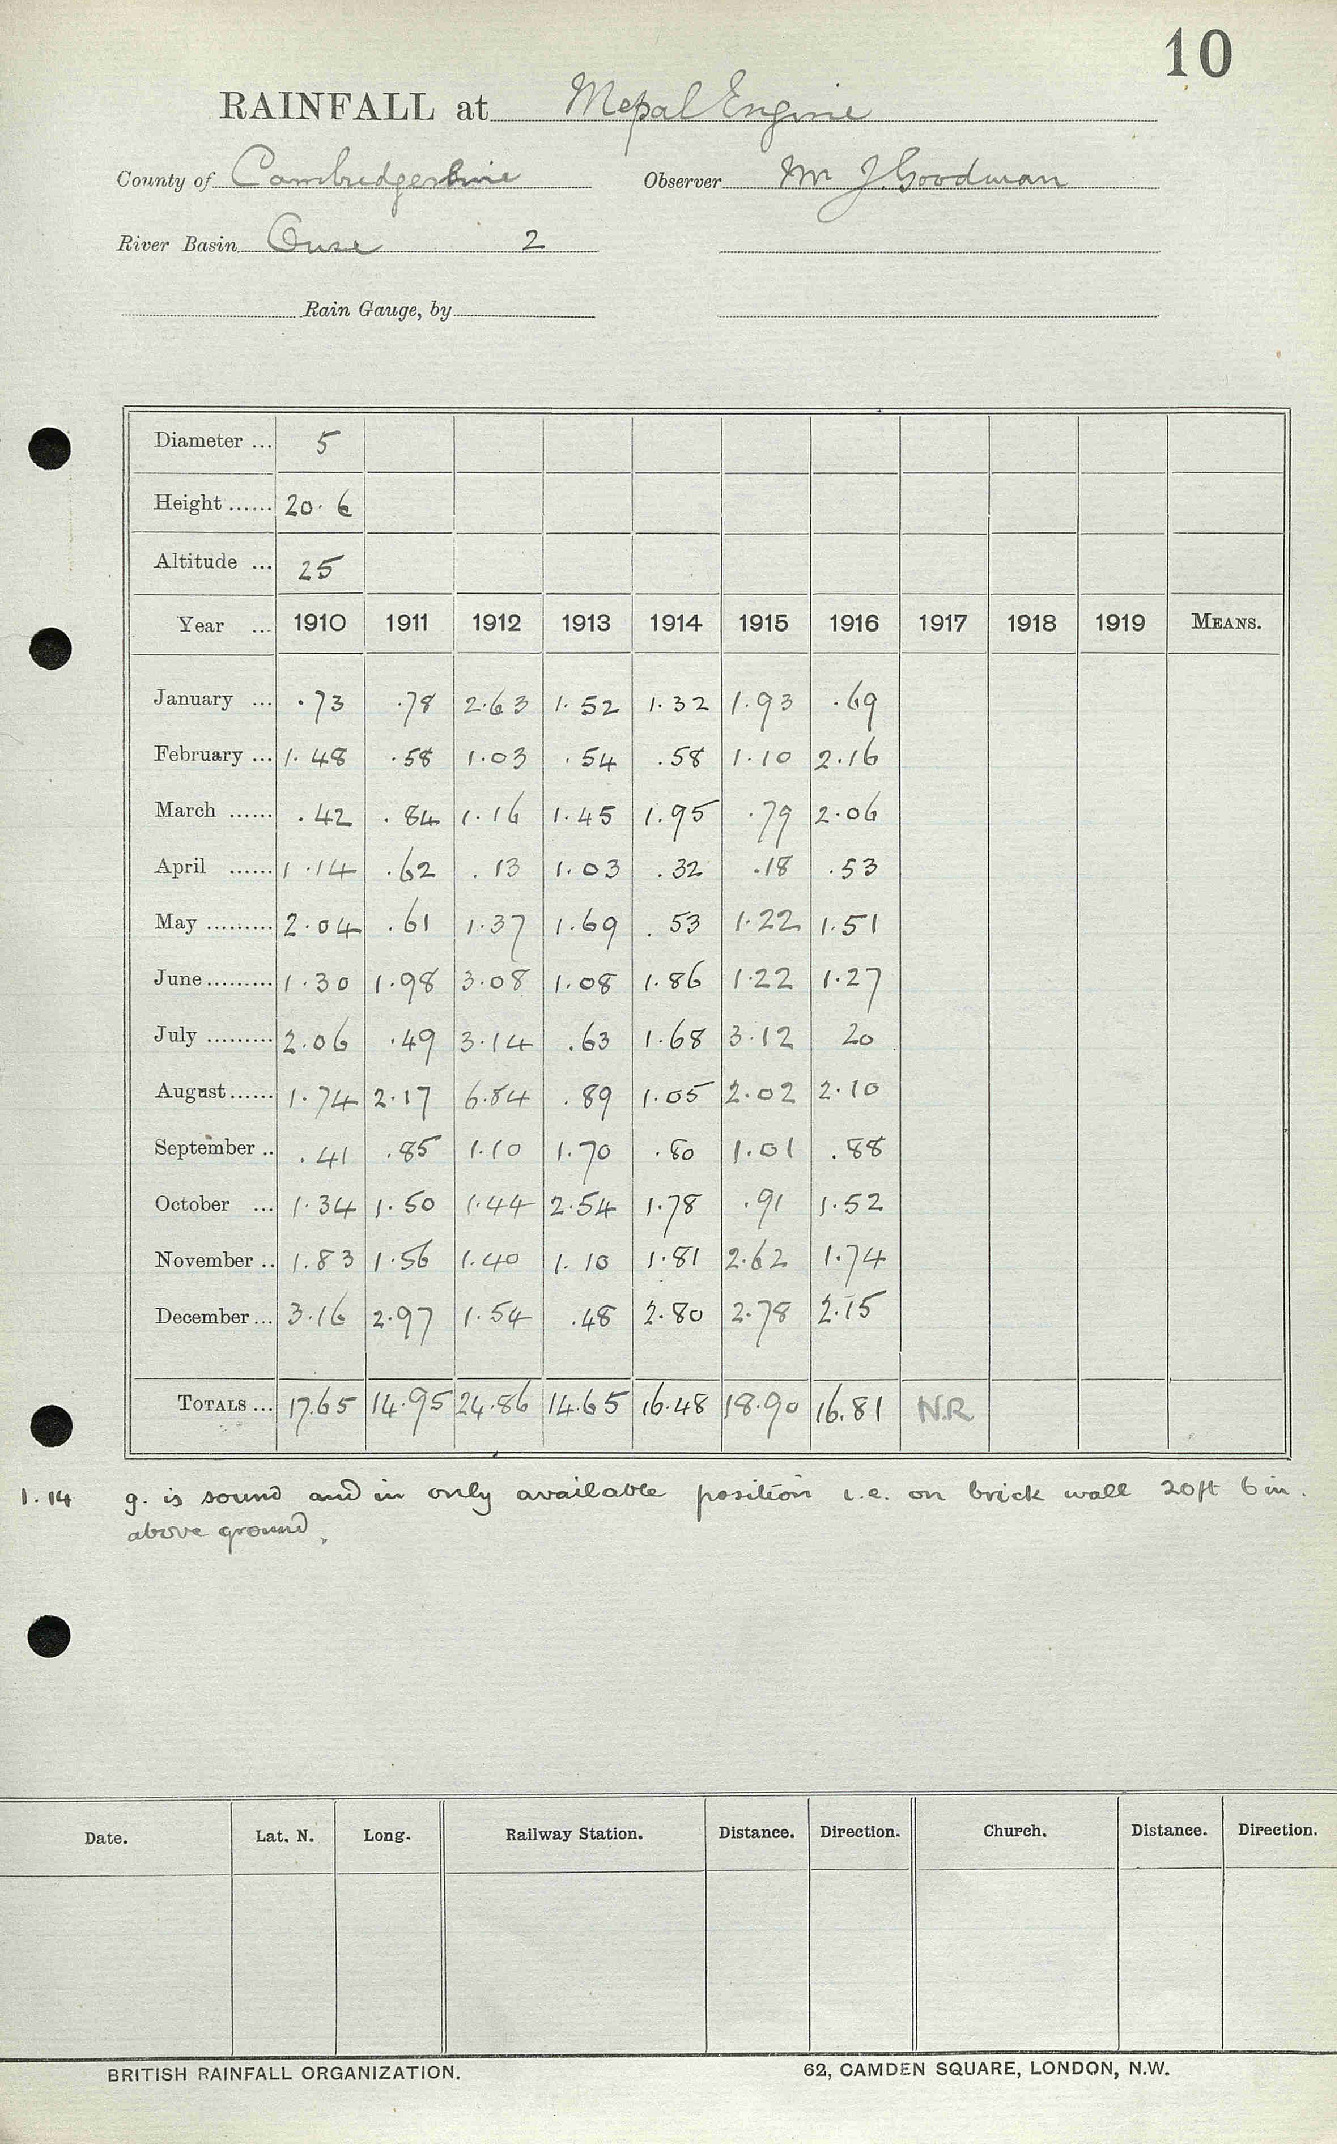 10
RAINFALL at Mepal Engine
County of Cambridgeshire Observer Mr J. Goodman
River Basin Ouse 2
Rain Gauge, by
Diameter ... 5
Height ...... 20.6
Altitude ... 25
Year ... 1910 1911 1912 1913 1914 1915 1916 1917 1918 1919 MEANS.
January ... .73 .78 2.63 1.52 1.32 1.93 .69
February ... 1.48 .58 1.03 .54 .58 1.10 2.16
March ...... .42 .84 1.16 1.45 1.95 .79 2.06
April ...... 1.14 .62 .13 1.03 .32 .18 .53
May ......... 2.04 .61 1.37 1.69 .53 1.22 1.51
June ......... 1.30 1.98 3.08 1.08 1.86 1.22 1.27
July ......... 2.06 .49 3.14 .63 1.68 3.12 20
August ...... 1.74 2.17 6.84 .89 1.05 2.02 2.10
September .. .41 .85 1.10 1.70 .80 1.01 .88
October ... 1.34 1.50 1.44 2.54 1.78 .91 1.52
November .. 1.83 1.56 1.40 1.10 1.81 2.62 1.74
December ... 3.16 2.97 1.54 .48 2.80 2.78 2.15
TOTALS ... 17.65 14.95 24.86 14.65 16.48 18.90 16.81 N.R.
1.14 g. is sound and in only available position i.e. on brick wall 20ft 6 in.
above ground.
Date. Lat. N. Long. Railway Station. Distance. Direction. Church. Distance. Direction.
BRITISH RAINFALL ORGANIZATION. 62, CAMDEN SQUARE, LONDON, N.W.